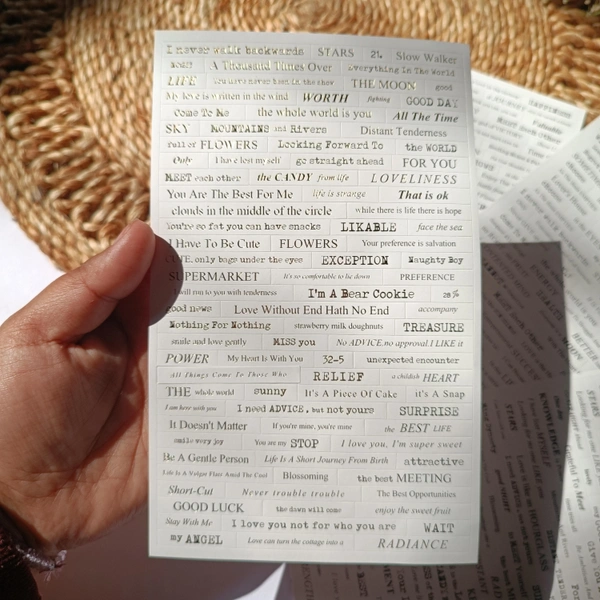 I never walk backwards STARS 21. Slow Walker
A Thousand Times Over Everything In The World
LIFE You have never been in the show THE MOON good
My love is written in the wind WORTH fighting GOOD DAY
Come To Me the whole world is you All The Time
SKY MOUNTAINS and Rivers Distant Tenderness
full of FLOWERS Looking Forward To the WORLD
Only I have lost my self go straight ahead FOR YOU
MEET each other the CANDY from life LOVELINESS
You Are The Best For Me life is strange That is ok
clouds in the middle of the circle while there is life there is hope
You're so fat you can have snacks LIKABLE face the sea
I Have To Be Cute FLOWERS Your preference is salvation
CUTE. only bags under the eyes EXCEPTION Naughty Boy
SUPERMARKET It's so comfortable to lie down PREFERENCE
I will run to you with tenderness I'm A Bear Cookie 28%
good news Love Without End Hath No End accompany
Nothing For Nothing strawberry milk doughnuts TREASURE
smile and love gently MISS you No ADVICE.no approval.I LIKE it
POWER My Heart Is With You 32-5 unexpected encounter
All Things Come To Those Who RELIEF a childish HEART
THE whole world sunny It's A Piece Of Cake it's A Snap
I am here with you I need ADVICE, but not yours SURPRISE
It Doesn't Matter If you're mine, you're mine the BEST LIFE
smile very joy You are my STOP I love you, I'm super sweet
Be A Gentle Person Life Is A Short Journey From Birth attractive
Life Is A Vulgar Flaxt Amid The Cool Blossoming the best MEETING
Short-Cut Never trouble trouble The Best Opportunities
GOOD LUCK the dawn will come enjoy the sweet fruit
Stay With Me I love you not for who you are WAIT
my ANGEL Love can turn the cottage into a RADIANCE